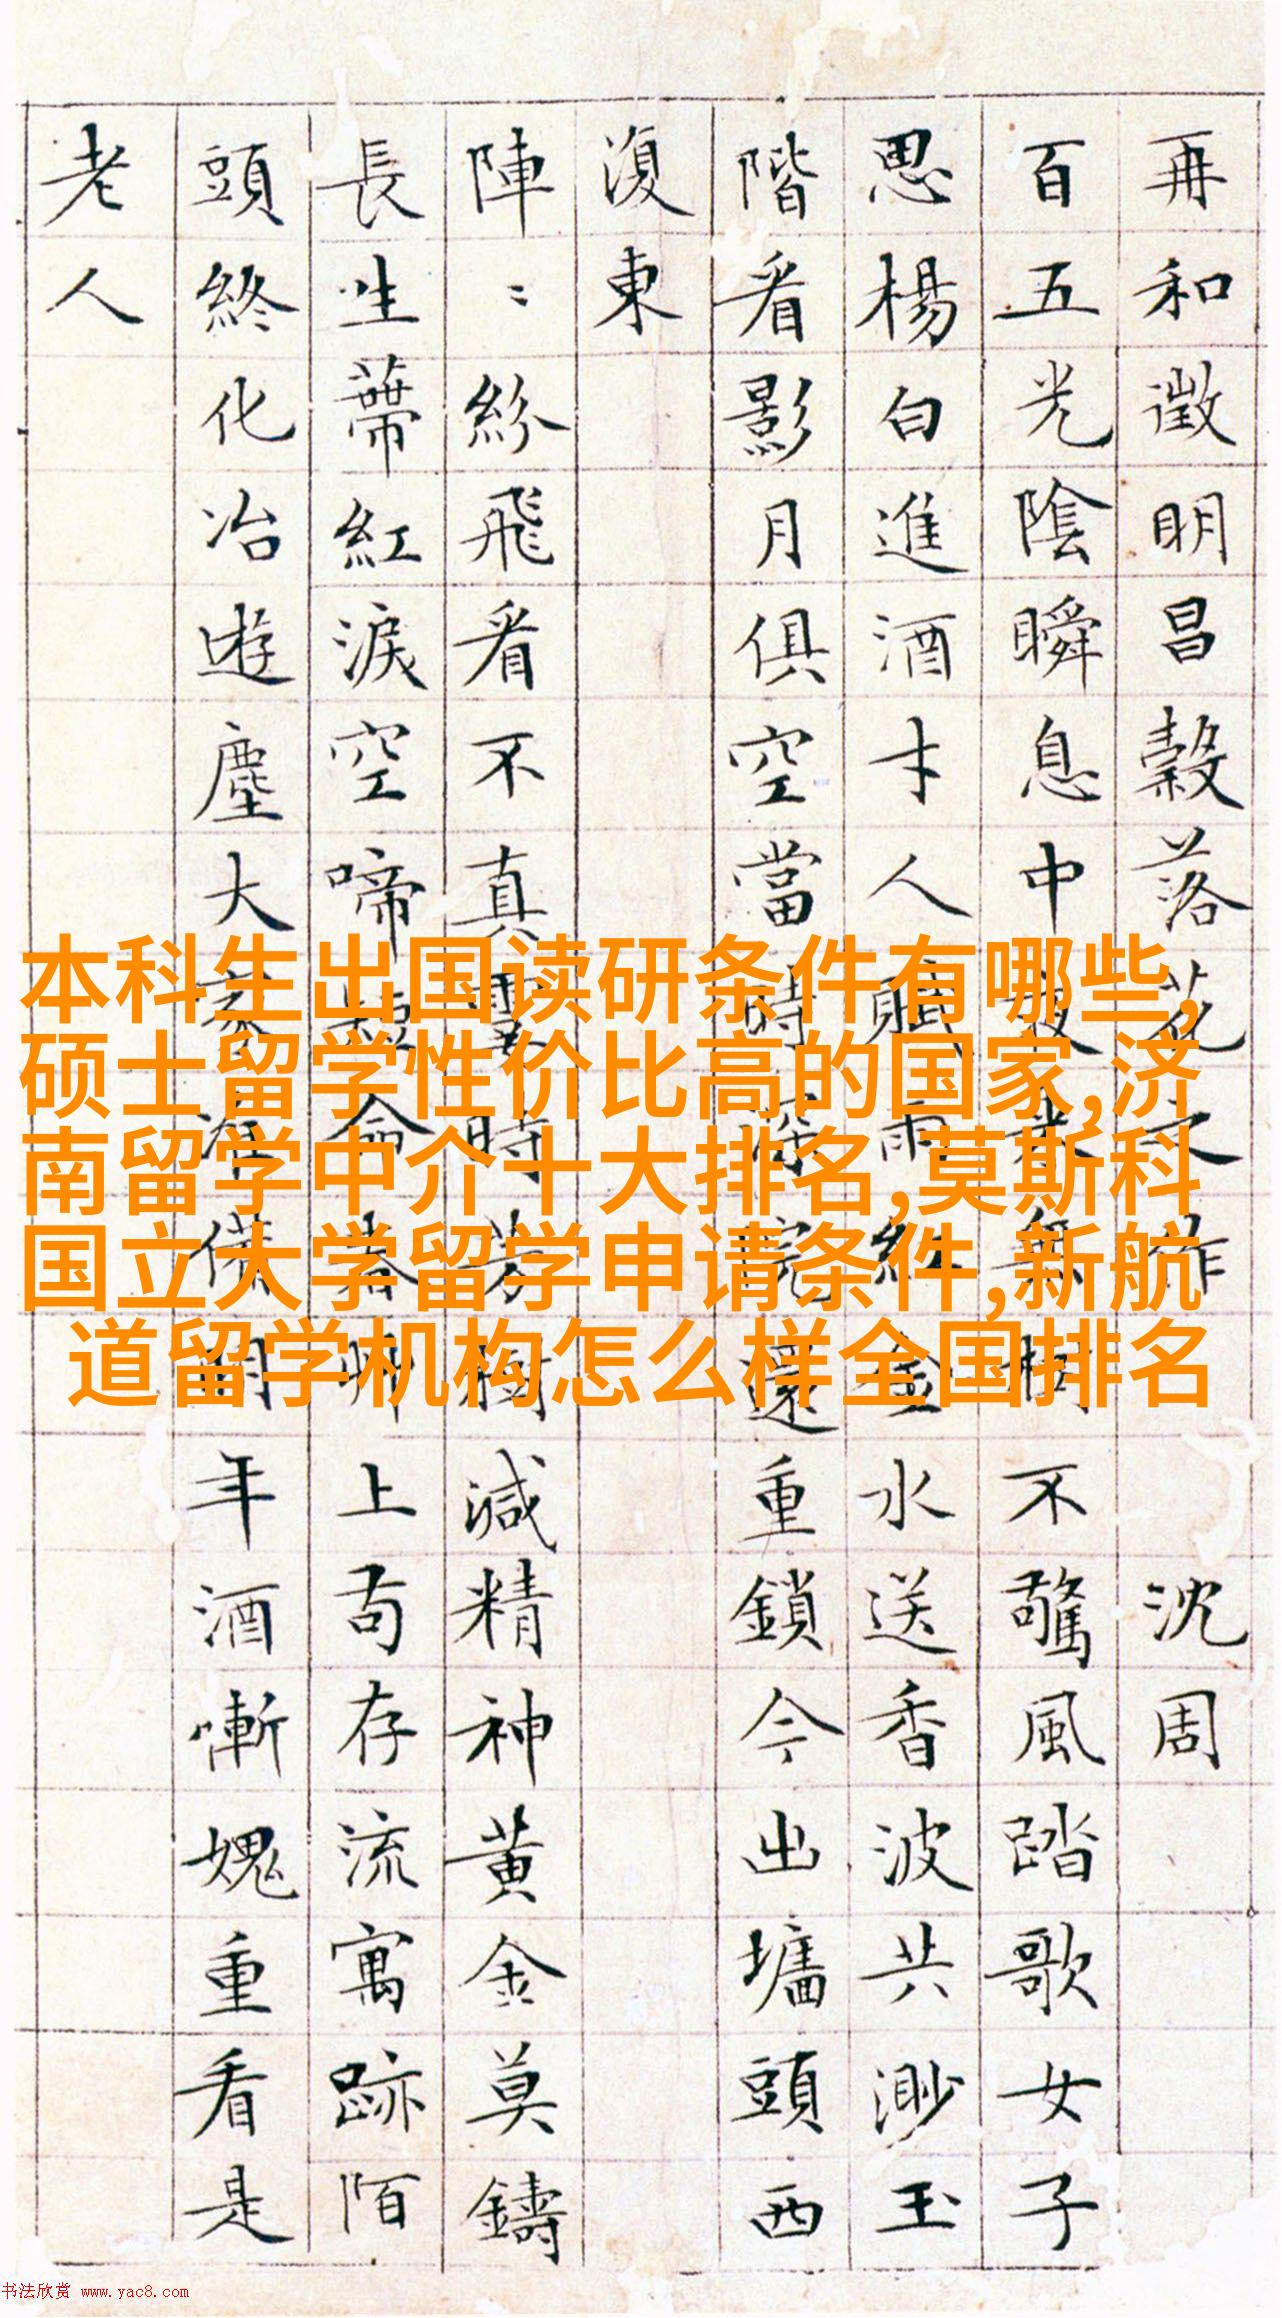 本科生出国读研条件有哪些,
硕士留学性价比高的国家,济
南留学中介十大排名,莫斯科
国立大学留学申请条件,新航
道留学机构怎么样全国排名
再和徵明昌穀落花之作 沈周
百五光陰瞬息中夜來無樹不驚風踏歌女子
思楊白進酒才人賦雨紅金水送香波共渺玉
階看影月俱空當時深院還重鎖今出墻頭西
復東
陣〻紛飛看不真霎時芳樹減精神黃金莫鑄
長生蒂紅淚空啼短命春艸上苟存流寓跡陌
頭終化冶遊塵大家准備明年酒慚愧重看是
老人
书法欣赏 www.yac8.com